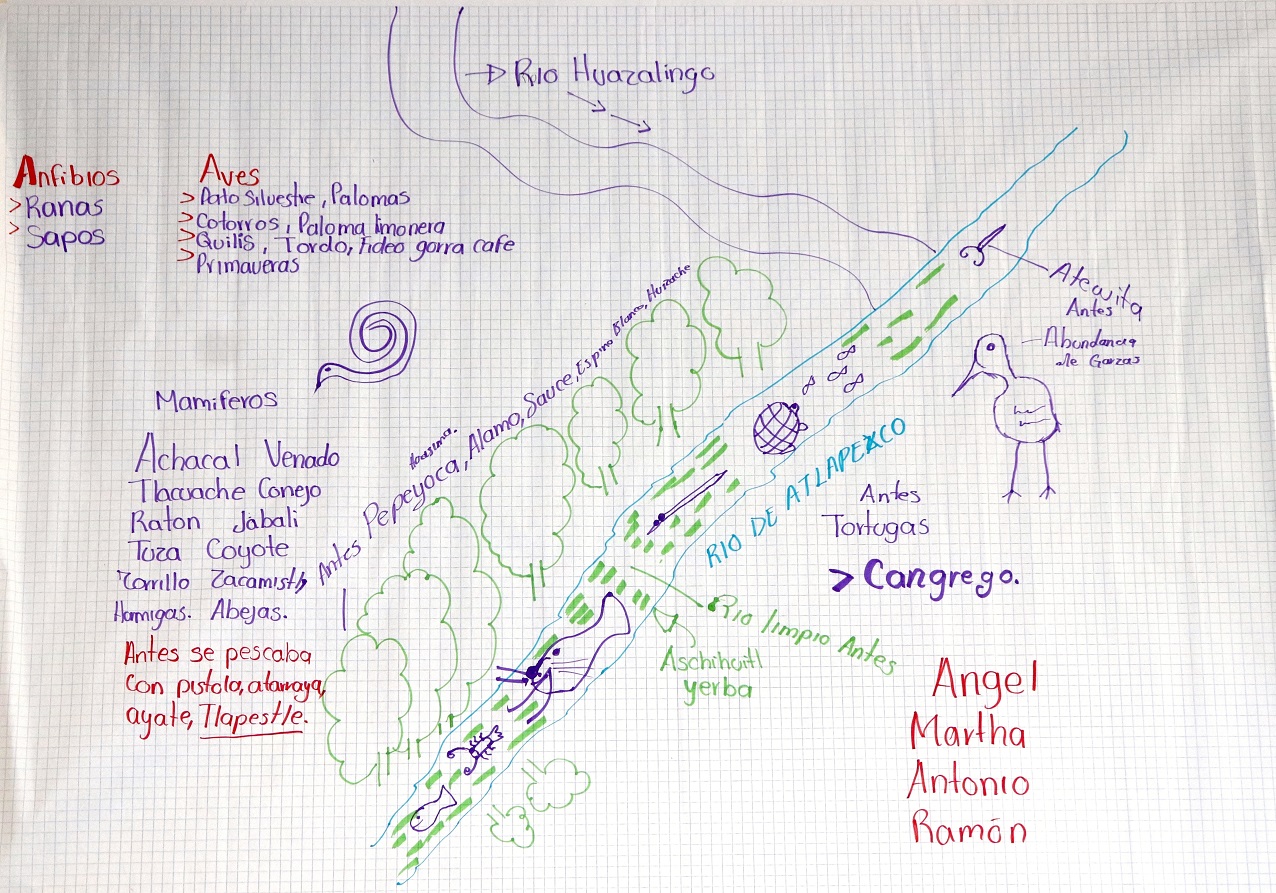 Rio Huazalingo
Anfibios
>Ranas
>Sapos
Aves
>Pato Silveshe, Palomas
>Cotorros, Paloma limonera
>Quilis, Tordo, Fideo gorra cafe
>Primaveras
Atewita
Antes
Abundancia
de Garzas
Mamiferos
Achacal Venado
Tlacuache Conejo
Raton Jabali
Tuza Coyote
Zorrillo Zacamistli
Hormigas. Abejas.
Antes Pepeyoca, Alamo, Sauce, Espino Blanco, Huizache
Antes se pescaba
Con pistola, atarraya,
ayate, Tlapestle.
RIO DE ATLAPEXCO
Antes
Tortugas
> Cangrego.
Rio limpio Antes
Aschihuitl
yerba
Angel
Martha
Antonio
Ramón